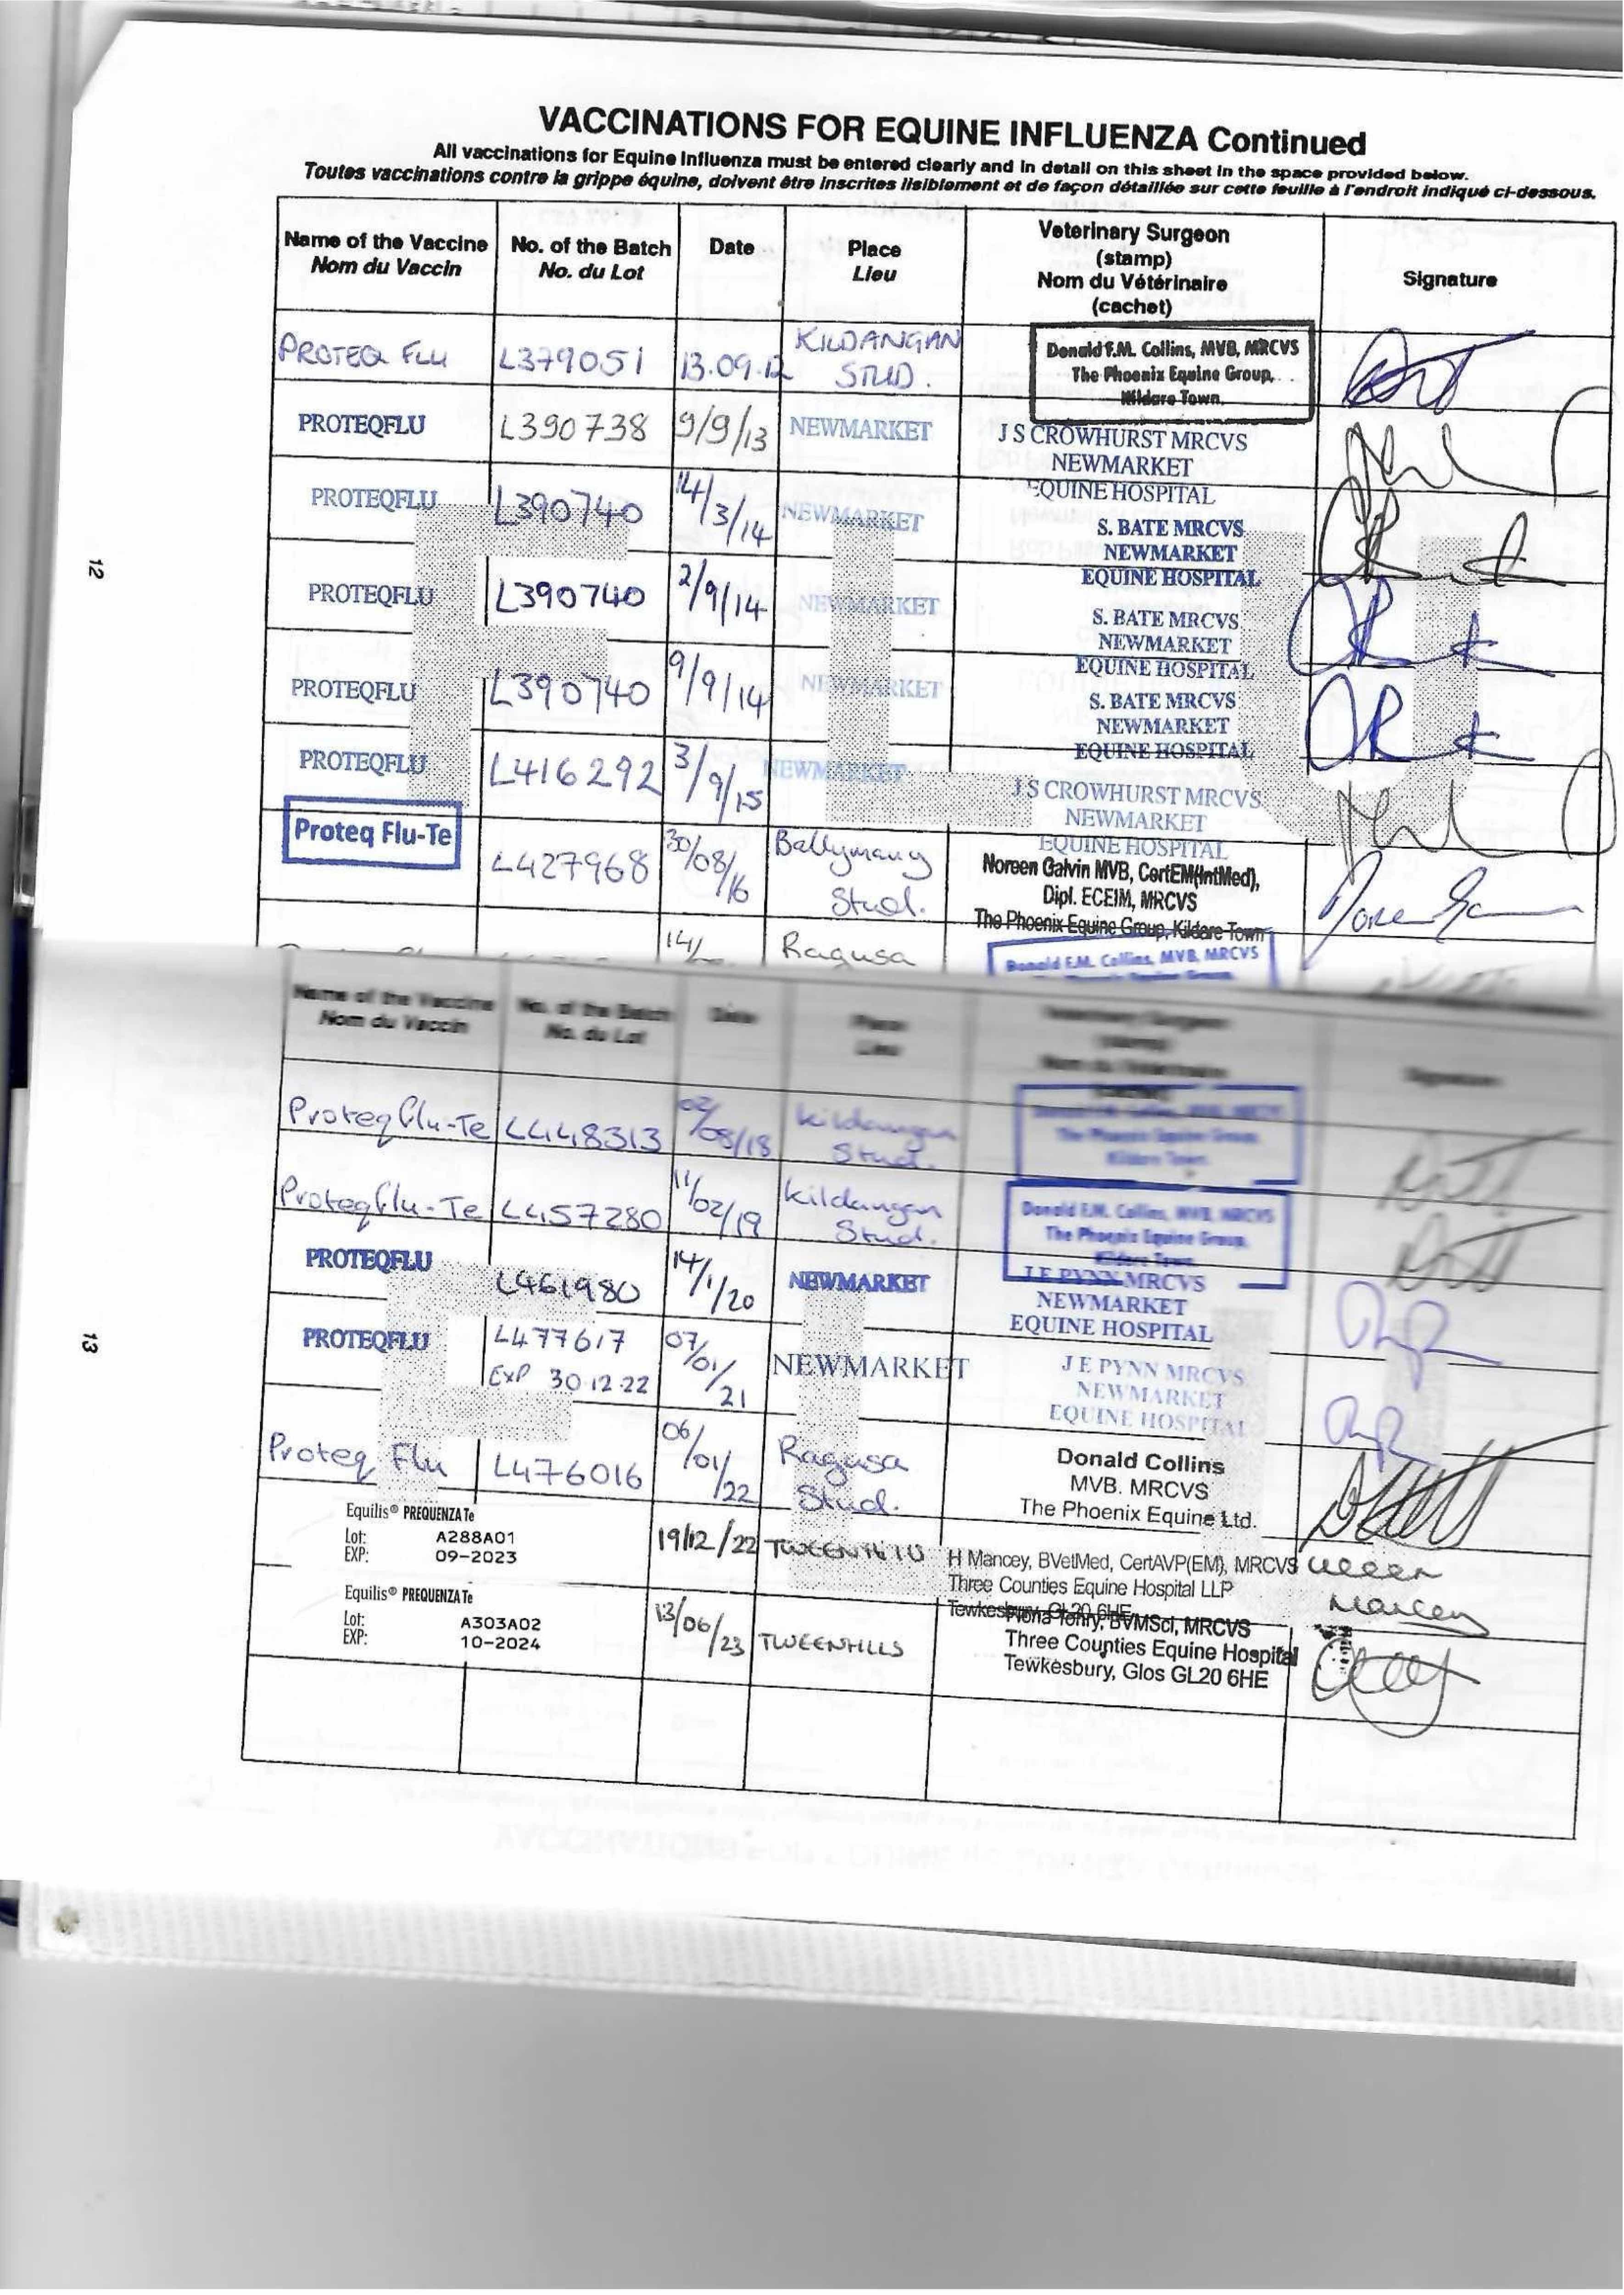 VACCINATIONS FOR EQUINE INFLUENZA Continued
All vaccinations for Equine Influenza must be entered clearly and in detail on this sheet in the space provided below.
Toutes vaccinations contre la grippe équine, doivent être inscrites lisiblement et de façon détaillée sur cette feuille à l'endroit indiqué ci-dessous.
Name of the Vaccine
Nom du Vaccin
No. of the Batch
No. du Lot
Date
Place
Lieu
Veterinary Surgeon
(stamp)
Nom du Vétérinaire
(cachet)
Signature
PROTEQ FLU L379051 13.09.12 KILDANGAN
STUD.
Donald F.M. Collins, MVB, MRCVS
The Phoenix Equine Group,
Kildare Town.
PROTEQFLU L390738 9/9/13 NEWMARKET
J S CROWHURST MRCVS
NEWMARKET
EQUINE HOSPITAL
PROTEQFLU L390740 14/3/14 NEWMARKET
S. BATE MRCVS
NEWMARKET
EQUINE HOSPITAL
PROTEQFLU L390740 2/9/14 NEWMARKET
S. BATE MRCVS
NEWMARKET
EQUINE HOSPITAL
PROTEQFLU L390740 9/9/14 NEWMARKET
S. BATE MRCVS
NEWMARKET
EQUINE HOSPITAL
PROTEQFLU L416292 3/9/15 NEWMARKET
J S CROWHURST MRCVS
NEWMARKET
EQUINE HOSPITAL
Proteq Flu-Te L427968 30/08/16 Ballymany
Stud.
Noreen Galvin MVB, CertEM(IntMed),
Dipl. ECEIM, MRCVS
The Phoenix Equine Group, Kildare Town
14/ Ragusa
Donald F.M. Collins, MVB, MRCVS
12
Name of the Vaccine
Nom du Vaccin
No. of the Batch
No. du Lot
Date
Place
Lieu
Signature
ProteqFlu-Te L448313 02/08/18 Kildangan
Stud.
Donald F.M. Collins, MVB, MRCVS
The Phoenix Equine Group,
Kildare Town.
ProteqFlu-Te L457280 11/02/19 Kildangan
Stud.
Donald F.M. Collins, MVB, MRCVS
The Phoenix Equine Group,
Kildare Town.
PROTEQFLU L461980 14/1/20 NEWMARKET
J E PYNN MRCVS
NEWMARKET
EQUINE HOSPITAL
PROTEQFLU L477617 07/01/21 NEWMARKET
EXP 30.12.22
J E PYNN MRCVS
NEWMARKET
EQUINE HOSPITAL
Proteq Flu L476016 06/01/22 Ragusa
Stud.
Donald Collins
MVB. MRCVS
The Phoenix Equine Ltd.
Equilis® PREQUENZA Te
Lot: A288A01
EXP: 09-2023
19/12/22 TWEENHILLS
H Mancey, BVetMed, CertAVP(EM), MRCVS
Three Counties Equine Hospital LLP
Tewkesbury, GL20 6HE
Mancey
Equilis® PREQUENZA Te
Lot: A303A02
EXP: 10-2024
13/06/23 TWEENHILLS
Fiona Tohry, BVMSci, MRCVS
Three Counties Equine Hospital
Tewkesbury, Glos GL20 6HE
13